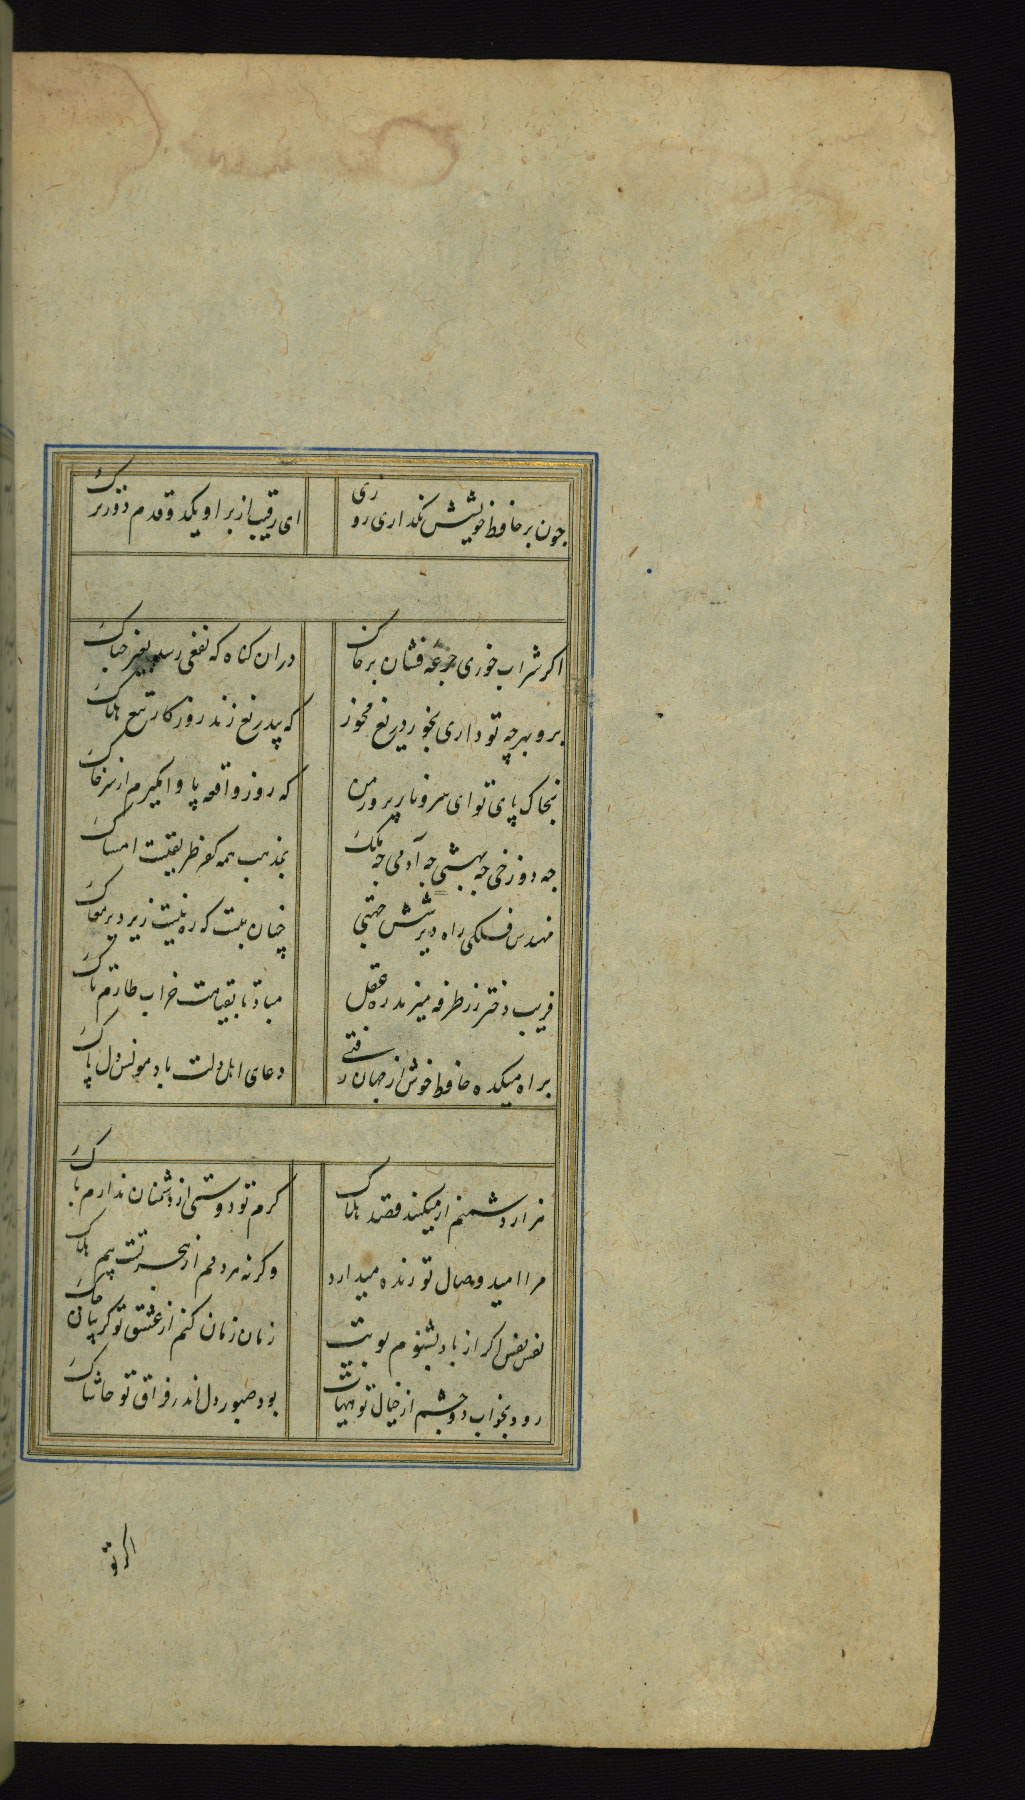 چون بر حافظ خویشش نگذاری روزی ای رقیب از بر او یکدو قدم دورترک
اگر شراب خوری جرعهٔ فشان بر خاک دران گناه که نفعی رسد بغیر چه باک
برو بهرچه تو داری بخور دریغ مخور که بیدریغ زند روزگار تیغ هلاک
بخاک پای تو ای سرو نازپرور من که روز واقعه پا وامگیرم از سر خاک
چه دوزخی چه بهشتی چه آدمی چه ملک بمذهب همه کفر طریقتست امساک
مهندس فلکی راه دیر شش جهتی چنان ببست که ره نیست زیر دیر مغاک
فریب دختر رز طرفه میزند ره عقل مباد تا بقیامت خراب طارم تاک
براه میکده حافظ خوش از جهان رفتی دعای اهل دلت باد مونس دل پاک
هزار دشمنم ار میکنند قصد هلاک گرم تو دوستی از دشمنان ندارم باک
مرا امید وصال تو زنده میدارد وگرنه هر دمم از هجر تست بیم هلاک
نفس نفس اگر از باد بشنوم بویت زمان زمان کنم از عشق تو گریبان چاک
رود بخواب دو چشم از خیال تو هیهات بود صبور دل اندر فراق تو حاشاک
اگر تو